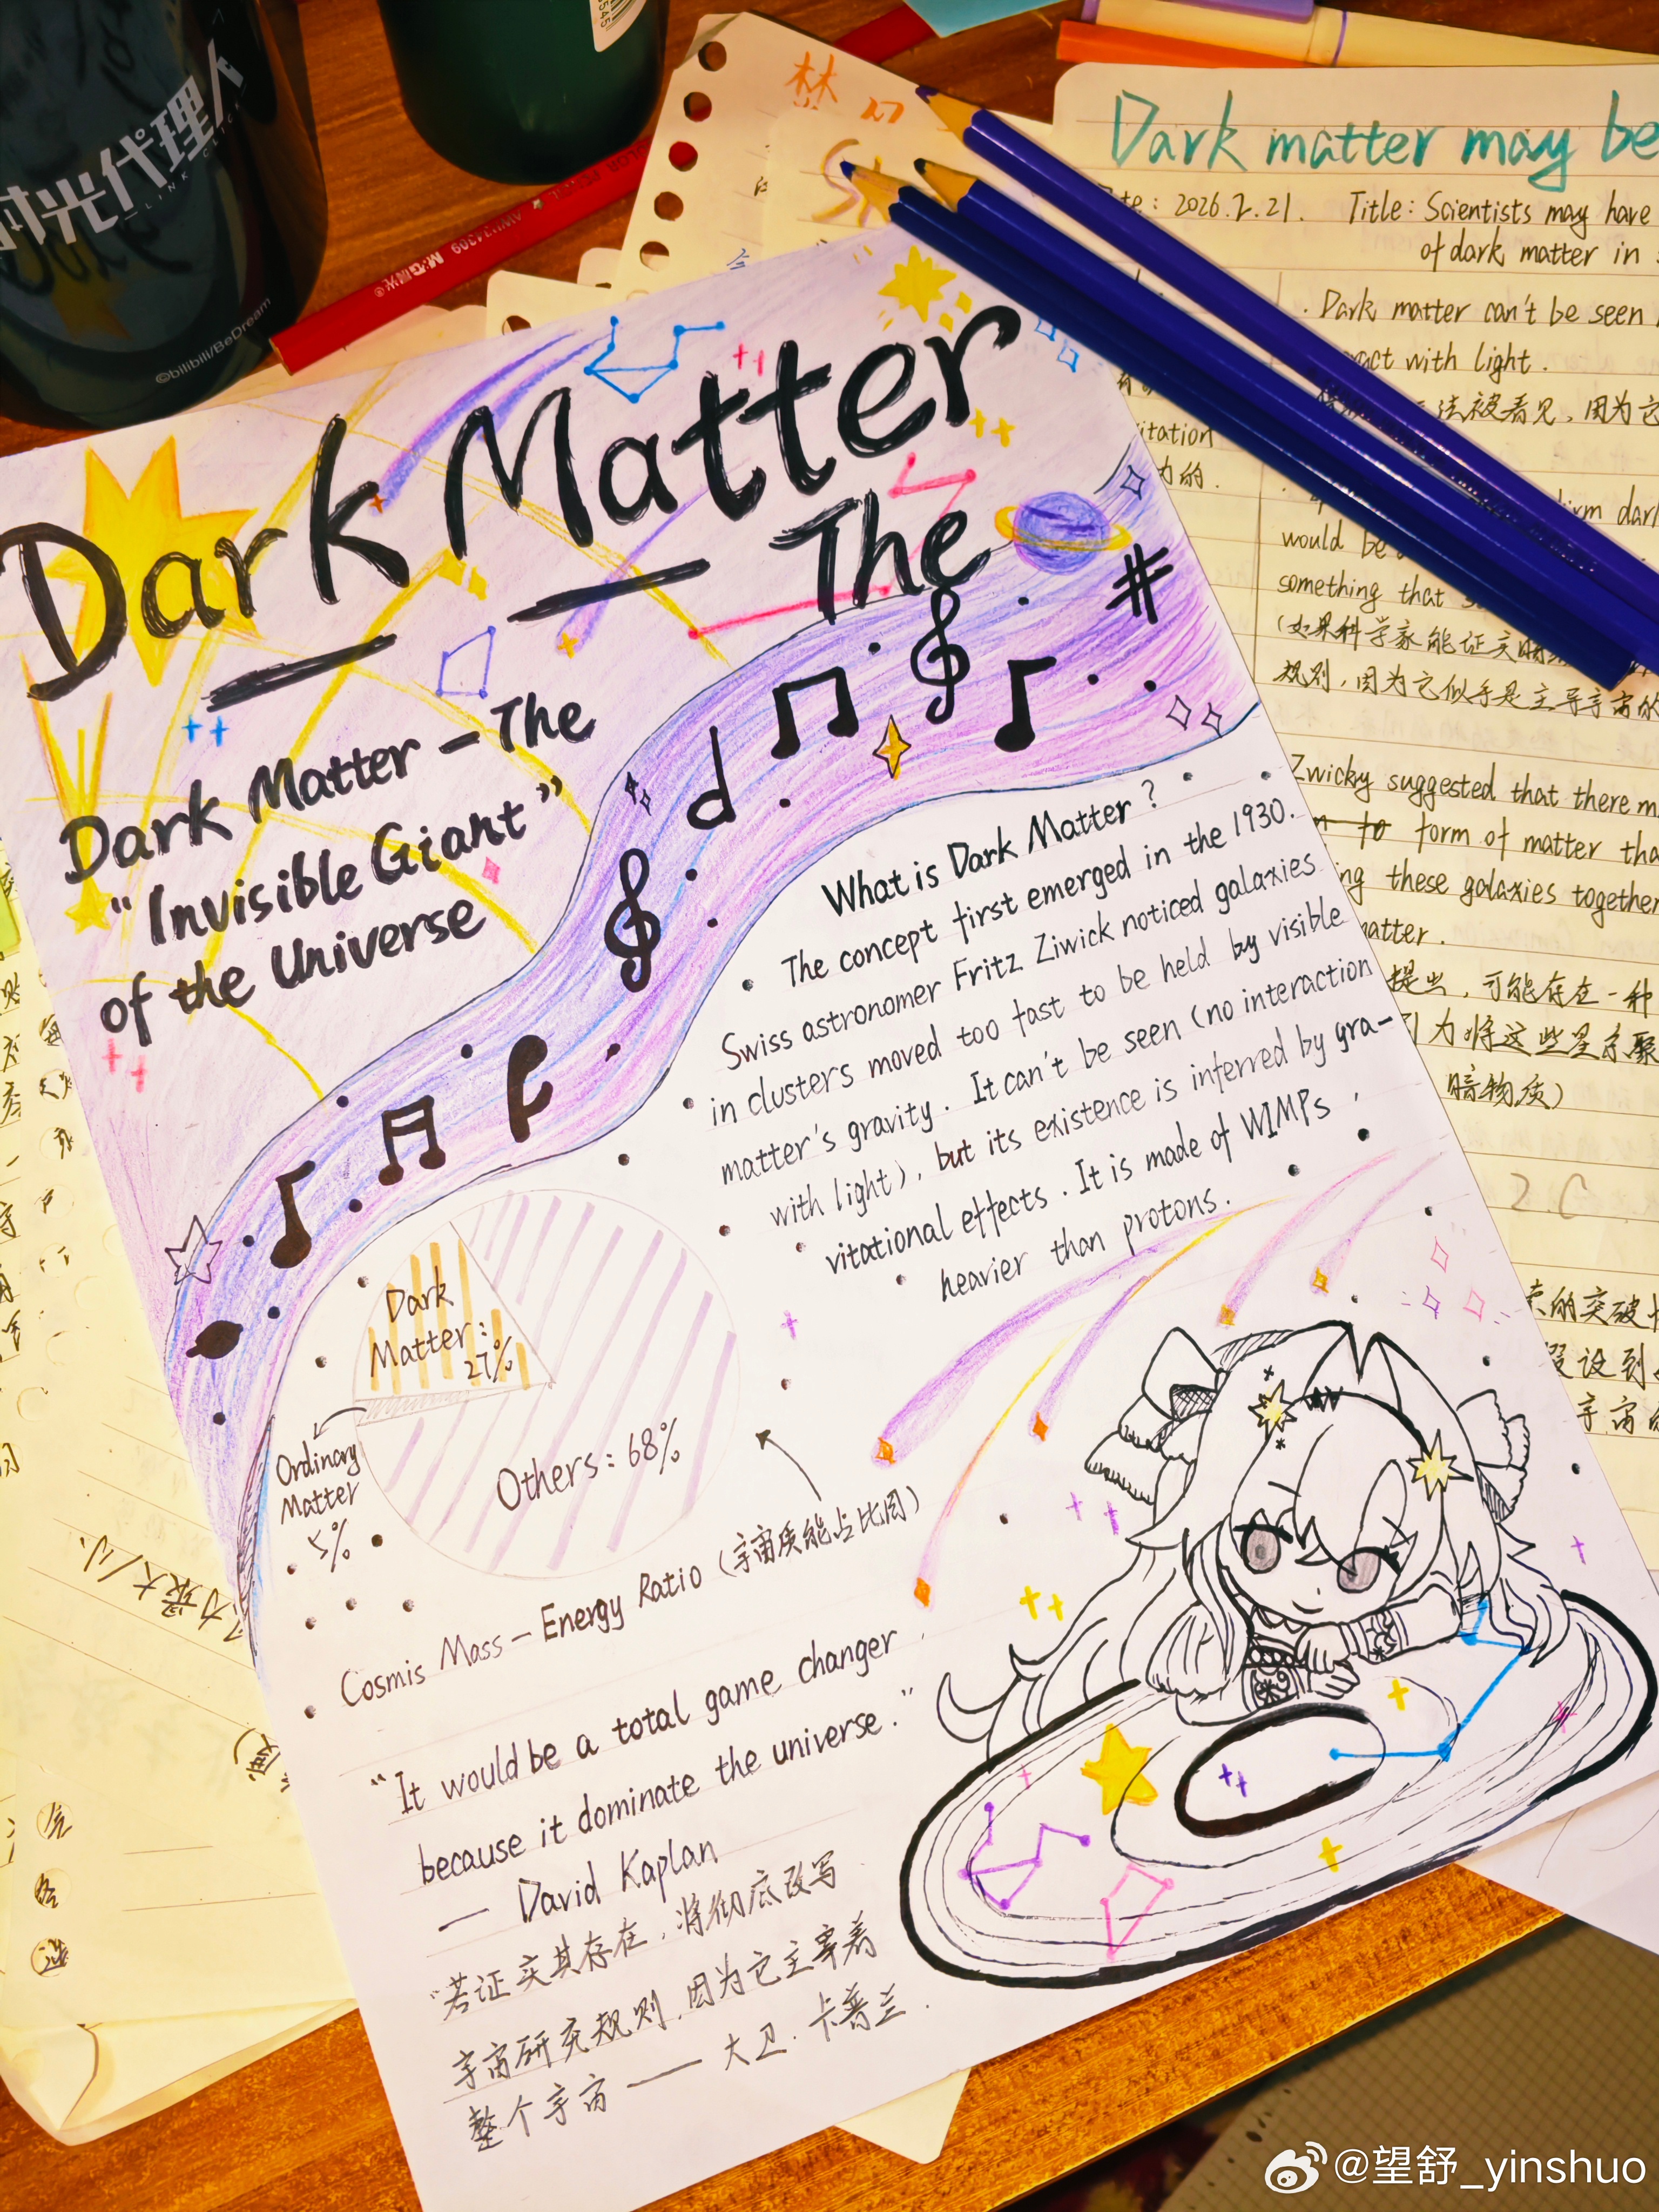 时光代理人
LINK CLICK
©bilibili/BeDream
M&G晨光
Dark matter may be
2026.2.21. Title: Scientists may have
of dark matter in
· Dark matter can't be seen
with light.
被看见，因为它
itation
力的.
dark
would be
something that
(如果科学家能证实暗
规则，因为它似乎是主导宇宙的
Zwicky suggested that there
form of matter
these galaxies together
matter.
提出，可能存在一种
力将这些星系聚
暗物质)
2.C
的突破
设到
宇宙
Dark Matter
— — The
Dark Matter — The
“Invisible Giant”
of the Universe
What is Dark Matter?
The concept first emerged in the 1930.
Swiss astronomer Fritz Ziwick noticed galaxies
in clusters moved too fast to be held by visible
matter's gravity. It can't be seen (no interaction
with light), but its existence is inferred by gra-
vitational effects. It is made of WIMPs,
heavier than protons.
Dark
Matter:
27%
Ordinary
Matter
5%
Others: 68%
Cosmis Mass — Energy Ratio (宇宙质能占比图)
“It would be a total game changer
because it dominate the universe.”
— David Kaplan
“若证实其存在，将彻底改写
宇宙研究规则，因为它主宰着
整个宇宙 —— 大卫·卡普兰.
力最大/小
@望舒_yinshuo